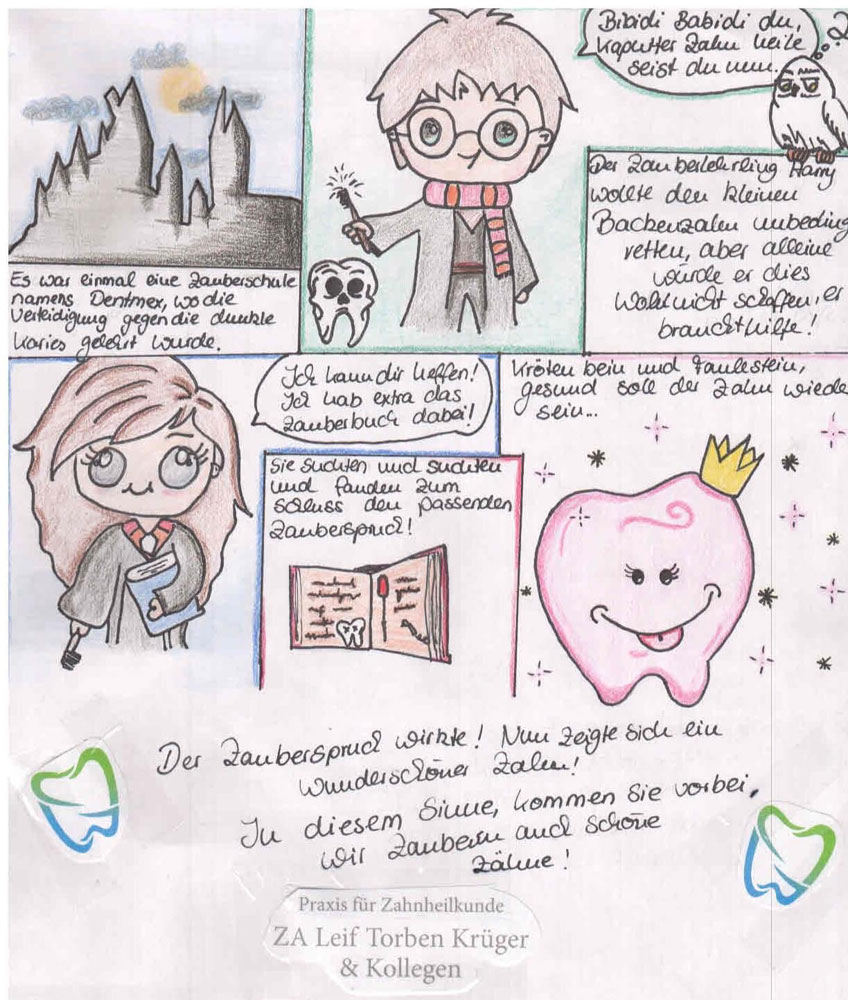 Es war einmal eine Zauberschule
namens Dentmex, wo die
Verteidigung gegen die dunkle
Karies gelehrt wurde.
Bibidi Babidi du,
kaputter Zahn heile
seist du nun...
?
Der Zauberlehrling Harry
wollte den kleinen
Backenzahn unbeding
retten, aber alleine
würde er dies
Wohl nicht schaffen, er
braucht hilfe!
Ich kann dir helfen!
Ich hab extra das
Zauberbuch dabei!
Sie suchten und suchten
und fanden zum
schluss den passenden
Zauberspruch!
Kröten bein und Faulestein,
gesund soll der Zahn wiede
sein...
Der Zauberspruch wirkte! Nun zeigte sich ein
wunderschöner Zahn!
In diesem Sinne, kommen Sie vorbei,
wir Zaubern auch schöne
Zähne!
Praxis für Zahnheilkunde
ZA Leif Torben Krüger
& Kollegen